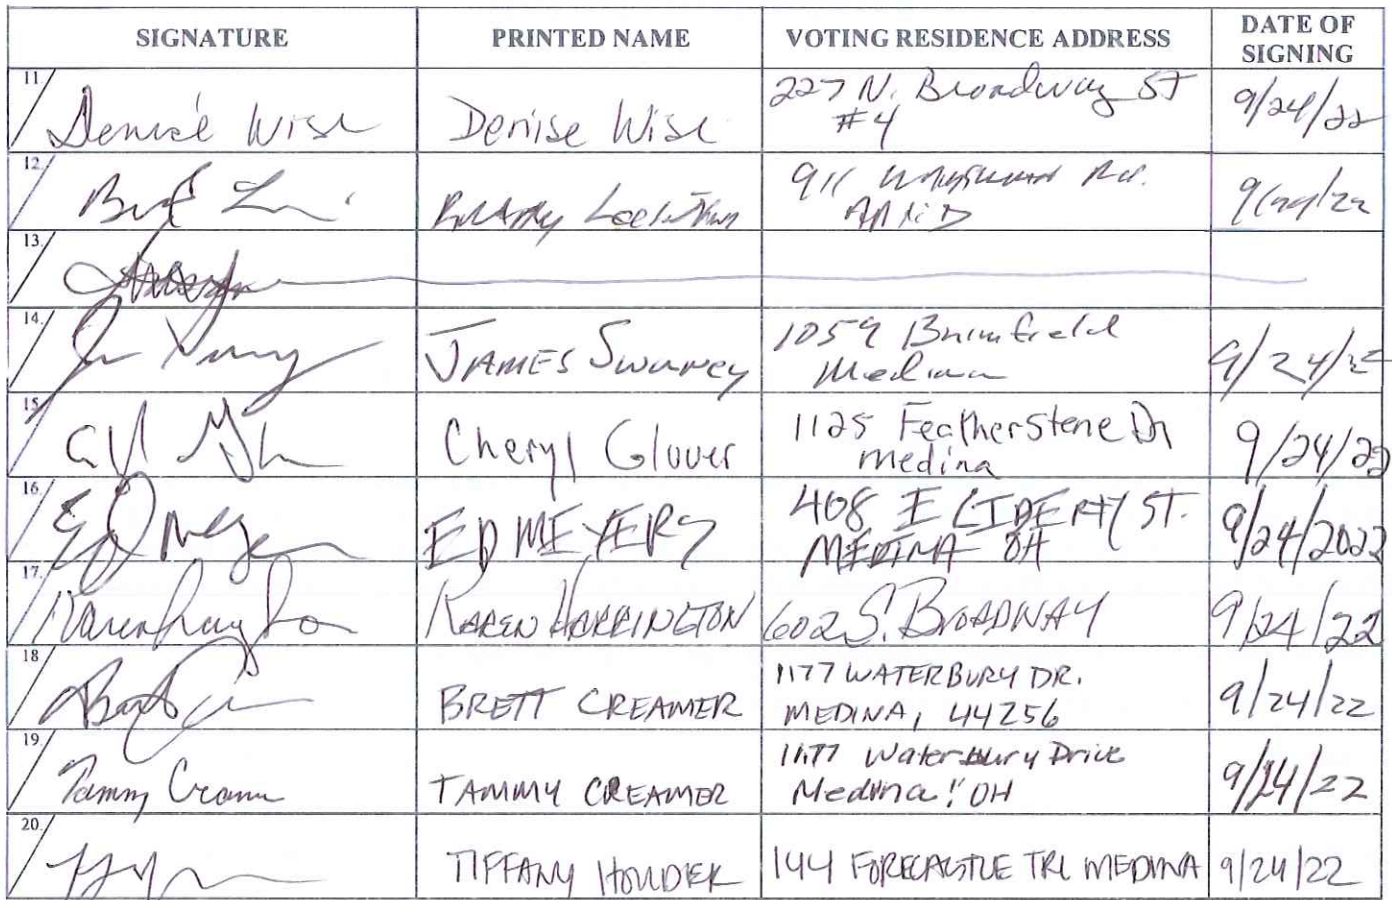 SIGNATURE PRINTED NAME VOTING RESIDENCE ADDRESS DATE OF SIGNING
11. Denise Wise Denise Wise 227 N. Broadway ST 9/24/22
#4
12. 911 Rd. 9/24/22
13.
14. JAMES Swaney 1059 Brimfield 9/24/22
Medina
15. Cheryl Glover 1125 Featherstone Dr 9/24/22
Medina
16. Ed Meyers ED MEYERS 408 E LIBERTY ST. 9/24/2022
MEDINA OH
17. Karen Harrington KAREN HARRINGTON 602 S. BROADWAY 9/24/22
18. BRETT CREAMER 1177 WATERBURY DR. 9/24/22
MEDINA, 44256
19. Tammy Creamer TAMMY CREAMER 1177 Waterbury Drive 9/24/22
Medina, OH
20. TIFFANY 144 FORECASTLE TRL MEDINA 9/24/22